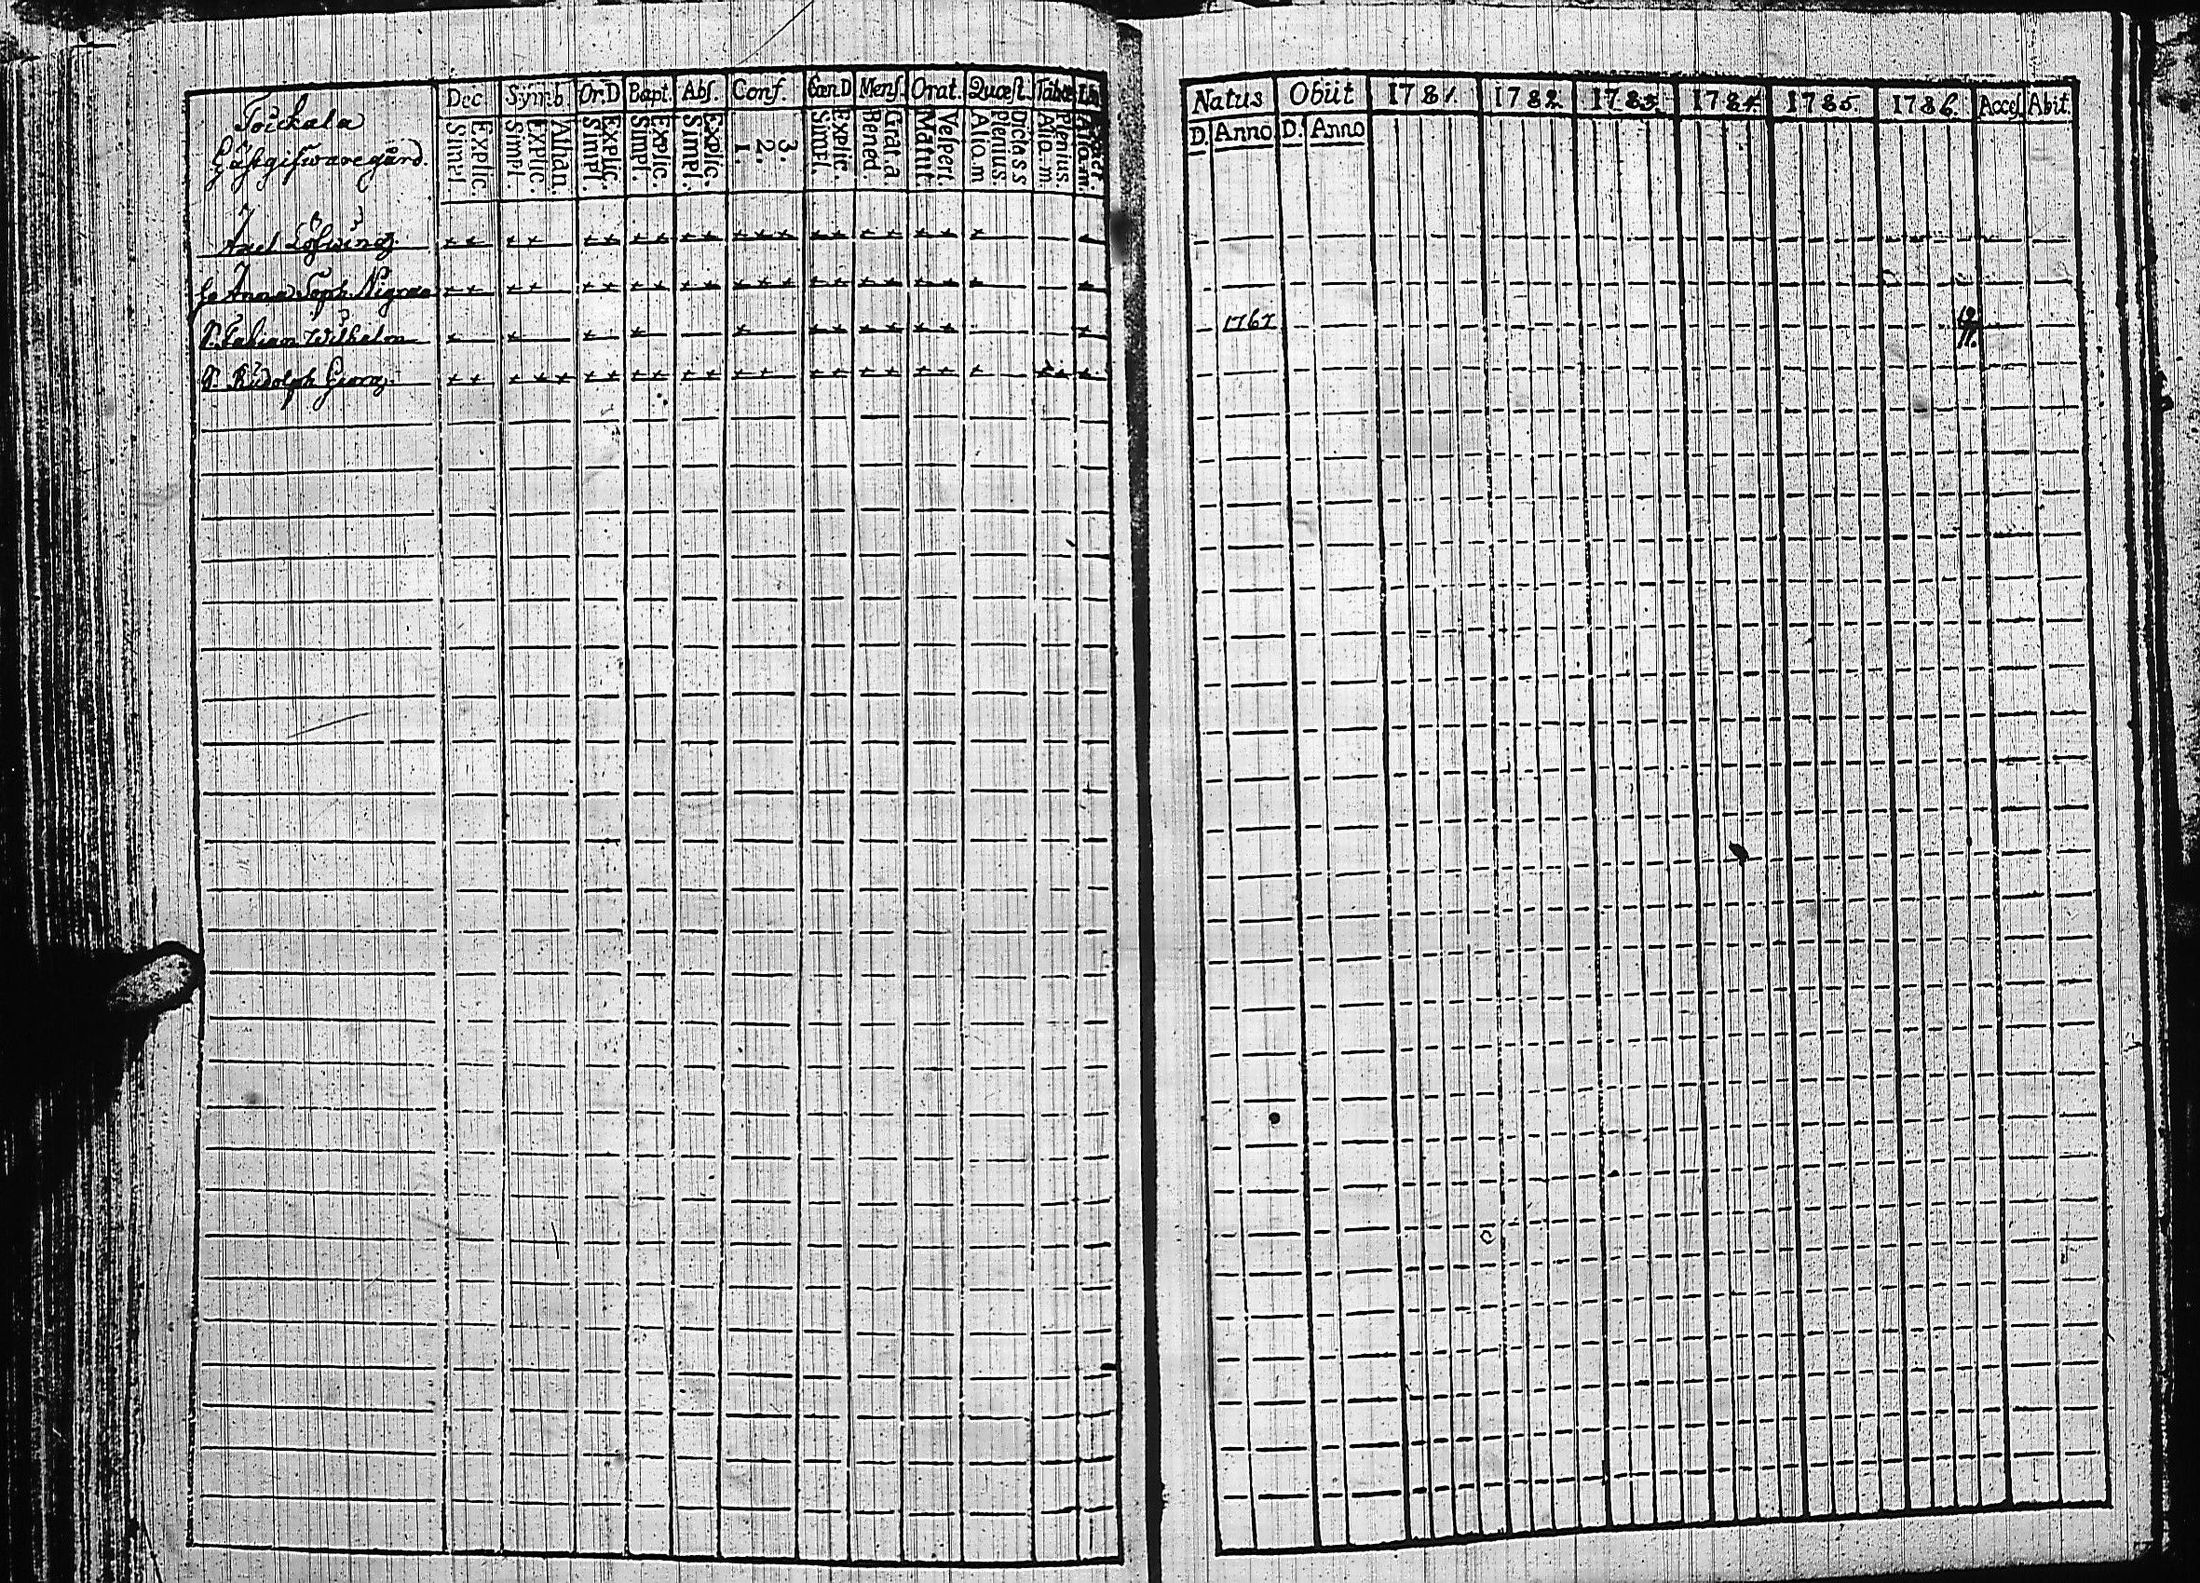 Toickala
Gästgifwaregård.
Dec Symb Or.D Bapt. Abſ. Conf. CœnD Menſ. Orat. Quœſt. Tabœ
Simpl. Explic. Simpl. Explic. Athan. Simpl. Explic. Simpl. Explic. Simpl. Explic. 1. 2. 3. Simpl. Explic. Bened. Grat.a. Matut. Veſpert. Aliq.m Plenius Dicta SS Aliq.m. Plenius.
Axel Löfwing
Anna Soph. Nigræa
S. Fabian Wilhelm
S. Rudolph Georg
Natus Obiit 1781. 1782. 1783. 1784. 1785. 1786. Acceſ. Abit.
D. Anno D. Anno
1767